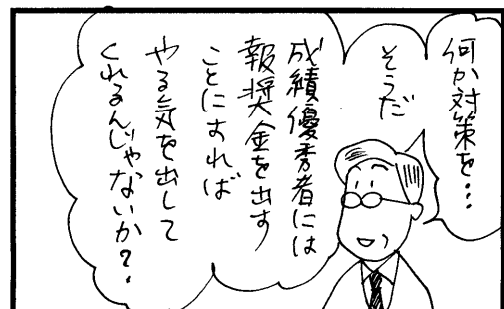 何か対策を…
そうだ
成績優秀者には
報奨金を出す
ことにすれば
やる気を出して
くれるんじゃないか?.